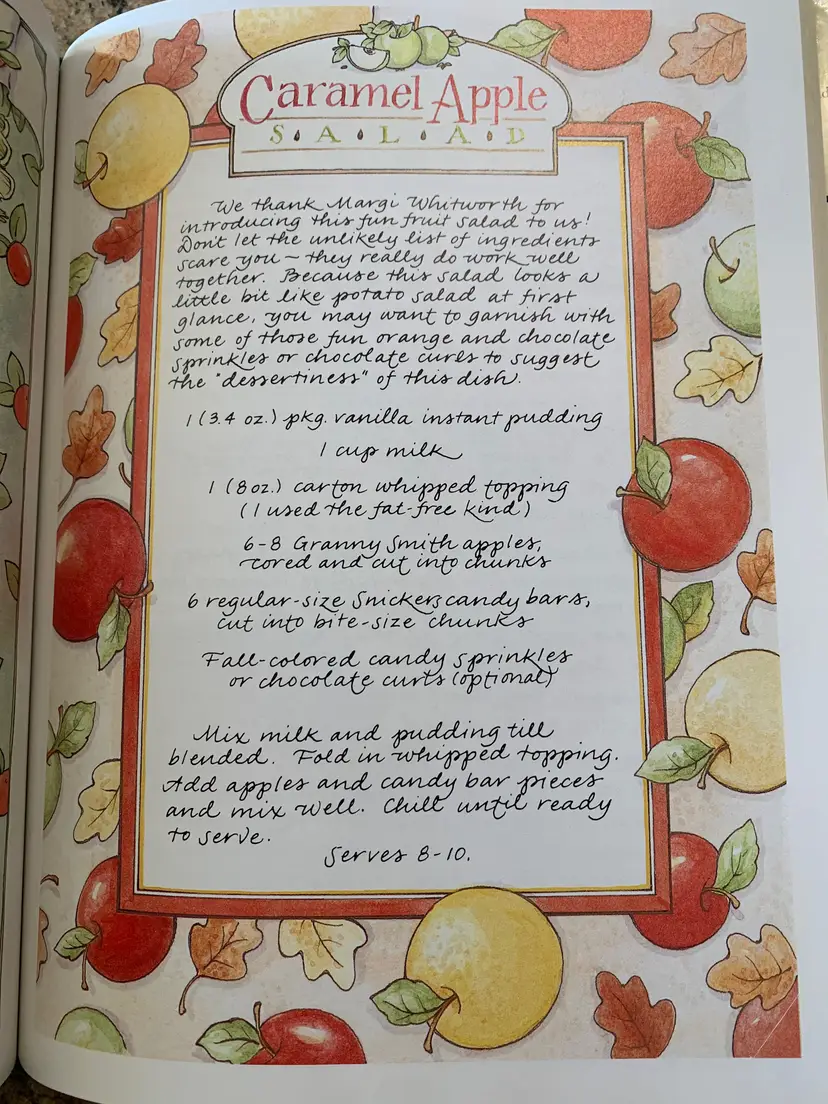 Caramel Apple
S·A·L·A·D
We thank Margi Whitworth for
introducing this fun fruit salad to us!
Don't let the unlikely list of ingredients
scare you – they really do work well
together. Because this salad looks a
little bit like potato salad at first
glance, you may want to garnish with
some of those fun orange and chocolate
sprinkles or chocolate curls to suggest
the "dessertiness" of this dish.
1 (3.4 oz.) pkg. vanilla instant pudding
1 cup milk
1 (8 oz.) carton whipped topping
(I used the fat-free kind)
6-8 Granny Smith apples,
cored and cut into chunks
6 regular-size Snickers candy bars,
cut into bite-size chunks
Fall-colored candy sprinkles
or chocolate curls (optional)
Mix milk and pudding till
blended. Fold in whipped topping.
Add apples and candy bar pieces
and mix well. Chill until ready
to serve.
Serves 8-10.